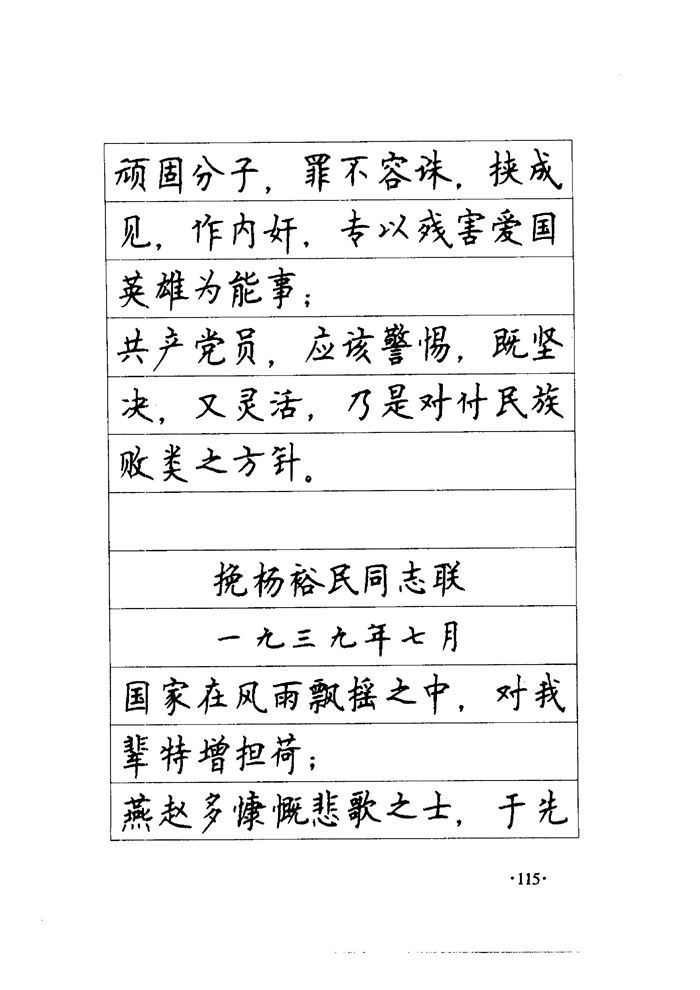 顽固分子，罪不容诛，挟成
见，作内奸，专以残害爱国
英雄为能事；
共产党员，应该警惕，既坚
决，又灵活，乃是对付民族
败类之方针。
挽杨裕民同志联
一九三九年七月
国家在风雨飘摇之中，对我
辈特增担荷；
燕赵多慷慨悲歌之士，于先
·115·